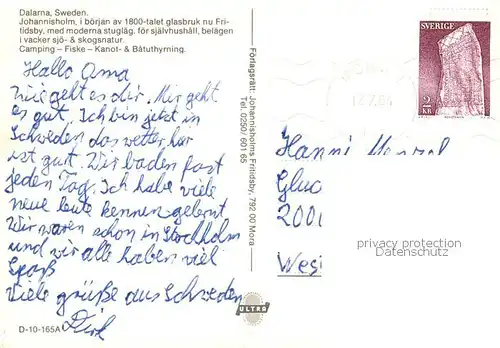 Dalarna, Sweden.
Johannisholm, i början av 1800-talet glasbruk nu Fri-
tidsby, med moderna stuglåg. för självhushåll, belägen
i vacker sjö- & skogsnatur.
Camping – Fiske – Kanot- & Båtuthyrning.
Hallo Oma
Wie geht es dir. Mir geht
es gut. Ich bin jetzt in
Schweden das wetter hir
ist gut. Wir baden fast
jeden Tag. Ich habe viele
neue leute kennen gelernt
Wir waren schon in Stockholm
und wir alle haben viel
Spaß
Viele grüße aus Schweden
Dirk
D-10-165A
ULTRA
Förlagsrätt: Johannisholms Fritidsby, 792 00 Mora
Tel. 0250/601 65
SVERIGE
2
KR
Hanni
Gluc
2001
Wes
privacy protection
Datenschutz